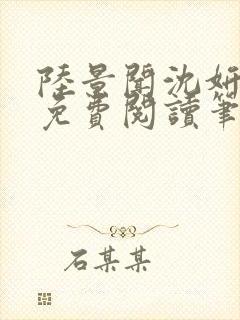 陸景聞沈妍
免費閱讀筆
石某某